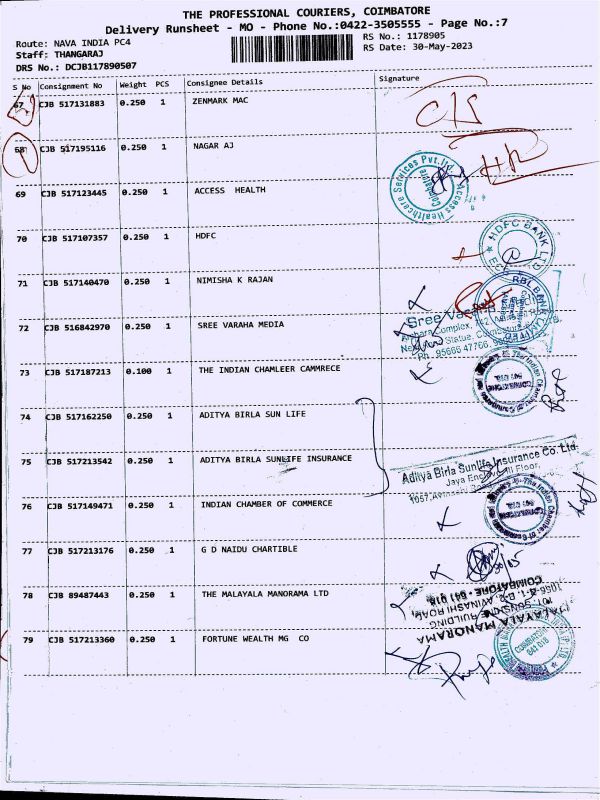 THE PROFESSIONAL COURIERS, COIMBATORE
Delivery Runsheet - MO - Phone No.:0422-3505555 - Page No.:7
Route: NAVA INDIA PC4
RS No.: 1178905
Staff: THANGARAJ
RS Date: 30-May-2023
DRS No.: DCJB117890507
S No Consignment No Weight PCS Consignee Details Signature
67 CJB 517131883 0.250 1 ZENMARK MAC
68 CJB 517195116 0.250 1 NAGAR AJ
69 CJB 517123445 0.250 1 ACCESS HEALTH
Access Healthcare Services Pvt.Ltd.
Coimbatore
70 CJB 517107357 0.250 1 HDFC
HDFC BANK LTD
71 CJB 517140470 0.250 1 NIMISHA K RAJAN
RBL BANK LIMITED
72 CJB 516842970 0.250 1 SREE VARAHA MEDIA
Sree
Complex,
Statue,
Ph : 95666 47766
73 CJB 517187213 0.100 1 THE INDIAN CHAMLEER CAMMRECE
The Indian Chamber of Commerce
74 CJB 517162250 0.250 1 ADITYA BIRLA SUN LIFE
75 CJB 517213542 0.250 1 ADITYA BIRLA SUNLIFE INSURANCE
Aditya Birla Sunlife Insurance Co. Ltd.
Jaya Floor,
1057,
76 CJB 517149471 0.250 1 INDIAN CHAMBER OF COMMERCE
The Indian Chamber of Commerce
77 CJB 517213176 0.250 1 G D NAIDU CHARTIBLE
30/05
78 CJB 89487443 0.250 1 THE MALAYALA MANORAMA LTD
MALAYALA MANORAMA
101, SUNSHINE BUILDING
AVINASHI ROAD,
COIMBATORE - 641 018
79 CJB 517213360 0.250 1 FORTUNE WEALTH MG CO
COIMBATORE
641 018